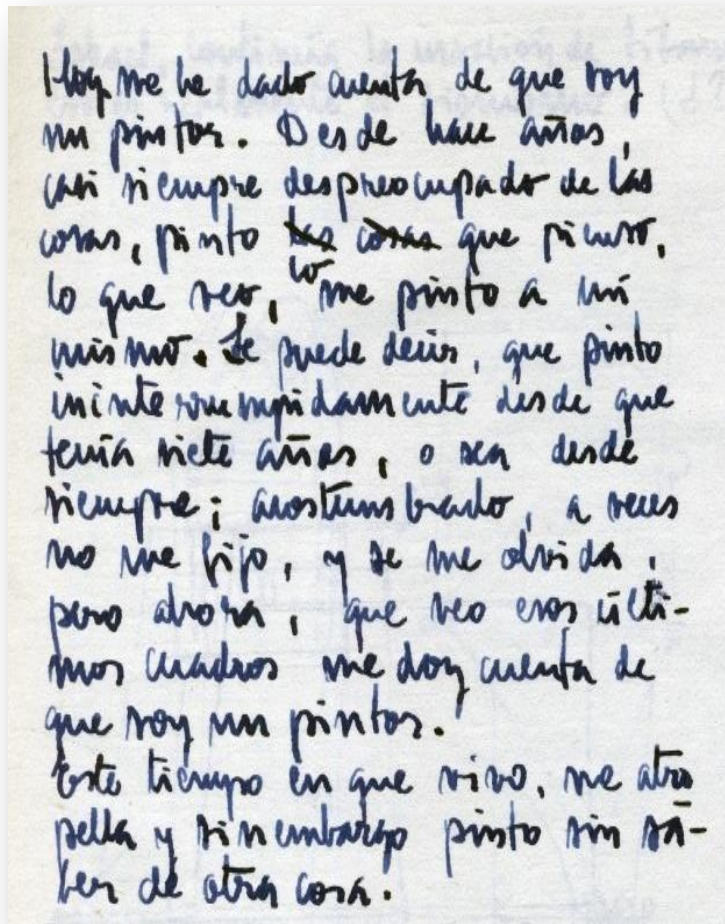 Hoy me he dado cuenta de que soy
un pintor. Desde hace años,
casi siempre despreocupado de las
cosas, pinto las cosas que pienso,
lo
lo que veo, me pinto a mí
mismo. Se puede decir, que pinto
ininterrumpidamente desde que
tenía siete años, o sea desde
siempre; acostumbrado, a veces
no me fijo, y se me olvida,
pero ahora, que veo esos últi-
mos cuadros me doy cuenta de
que soy un pintor.
Este tiempo en que vivo, me atro
pella y sin embargo pinto sin sa-
ber de otra cosa.